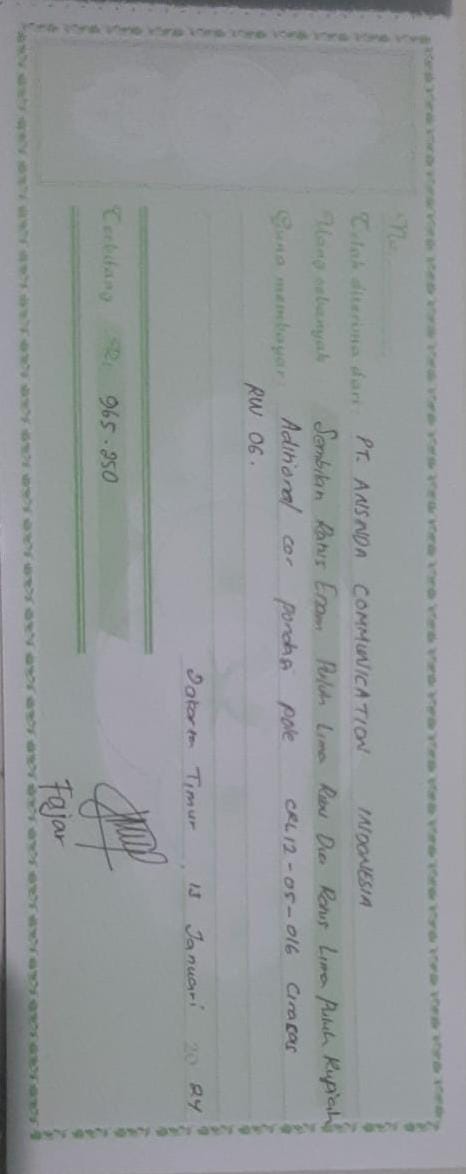 No.
Telah diterima dari: PT. ANSENDA COMMUNICATION INDONESIA
Uang sebanyak Sembilan Ratus Enam Puluh Lima Ribu Dua Ratus Lima Puluh Rupiah
Guna membayar: Aditional cor pondasi pole CRL12-05-016 Ciracas
RW 06.
Jakarta Timur, 13 Januari 2024
Terbilang Rp. 965.250
Fajar